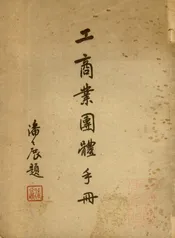 工商業團體手冊
潘公展題